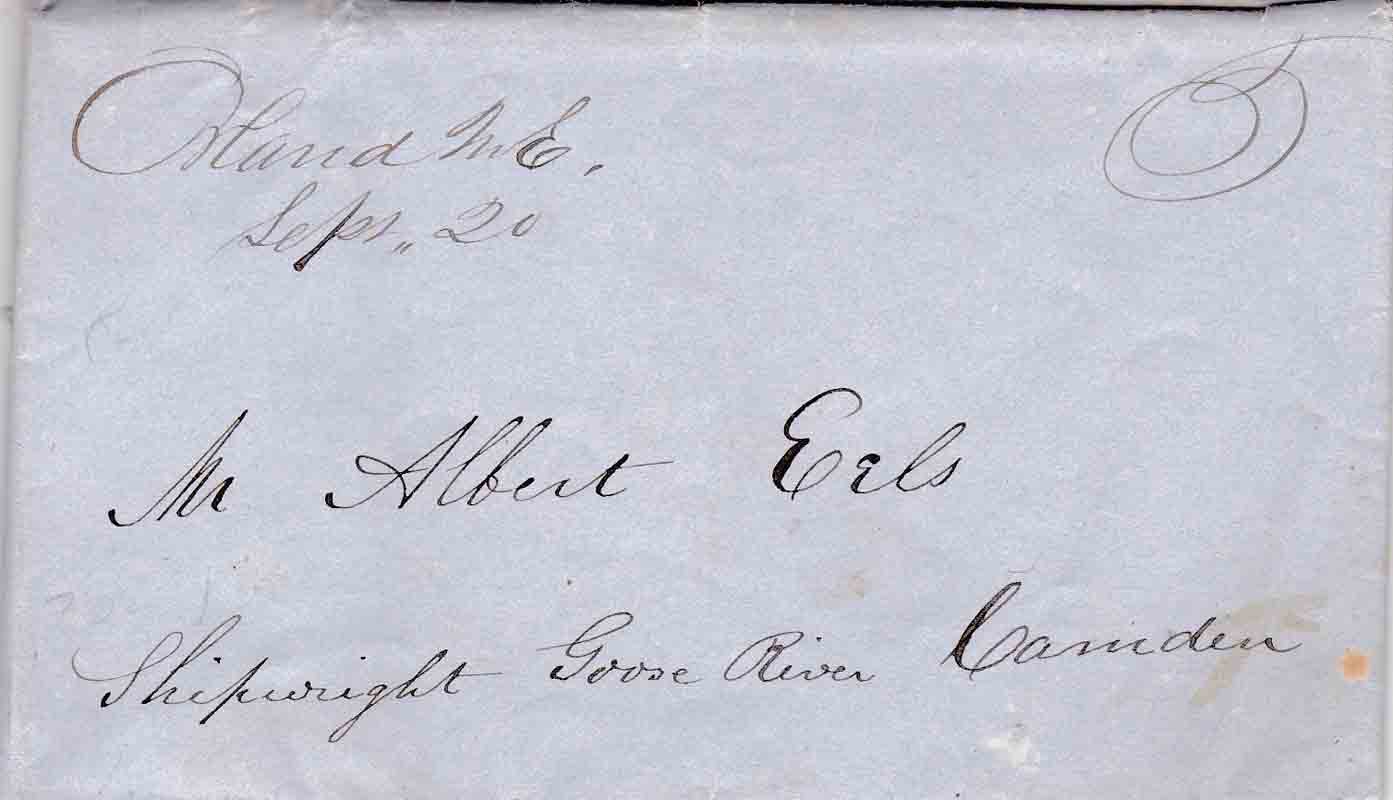 Orland ME.
Sept,, 20
5
Mr Albert Eels
Shipwright Goose River Camden